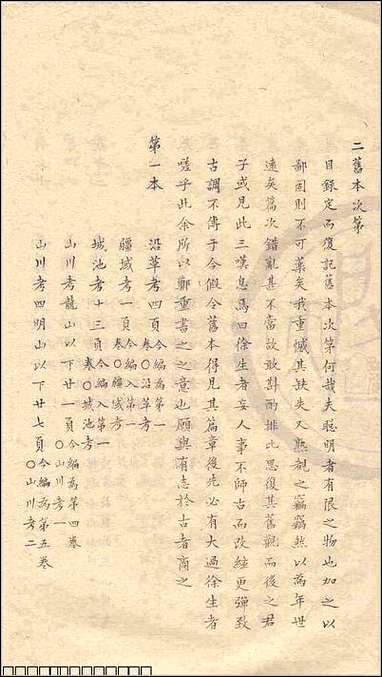 二舊本次第
目錄定而復記舊本次第何哉夫聰明者有限之物也加之以
鄙固則不可棄矣我重憾其缺失又熟視之竊竊然以為年世
遠矣篇次錯亂甚不當故敢斟酌排比思復其舊觀而後之君
子或見此三嘆息焉曰徐生者妄人事不師古而改絃更彈致
古調不傳于今假令舊本得見其篇章後先必有大過徐生者
嗟乎此余所以鄭重書之之意也願與有志於古者商之
第一本
沿革考四頁今編為第一卷〇沿革考
疆域考一頁今編入第一卷〇疆域考
城池考十三頁今編入第一卷〇城池考
山川考龍山以下廿一頁今編為第四卷〇山川考一
山川考四明山以下廿七頁今編為第五卷〇山川考二